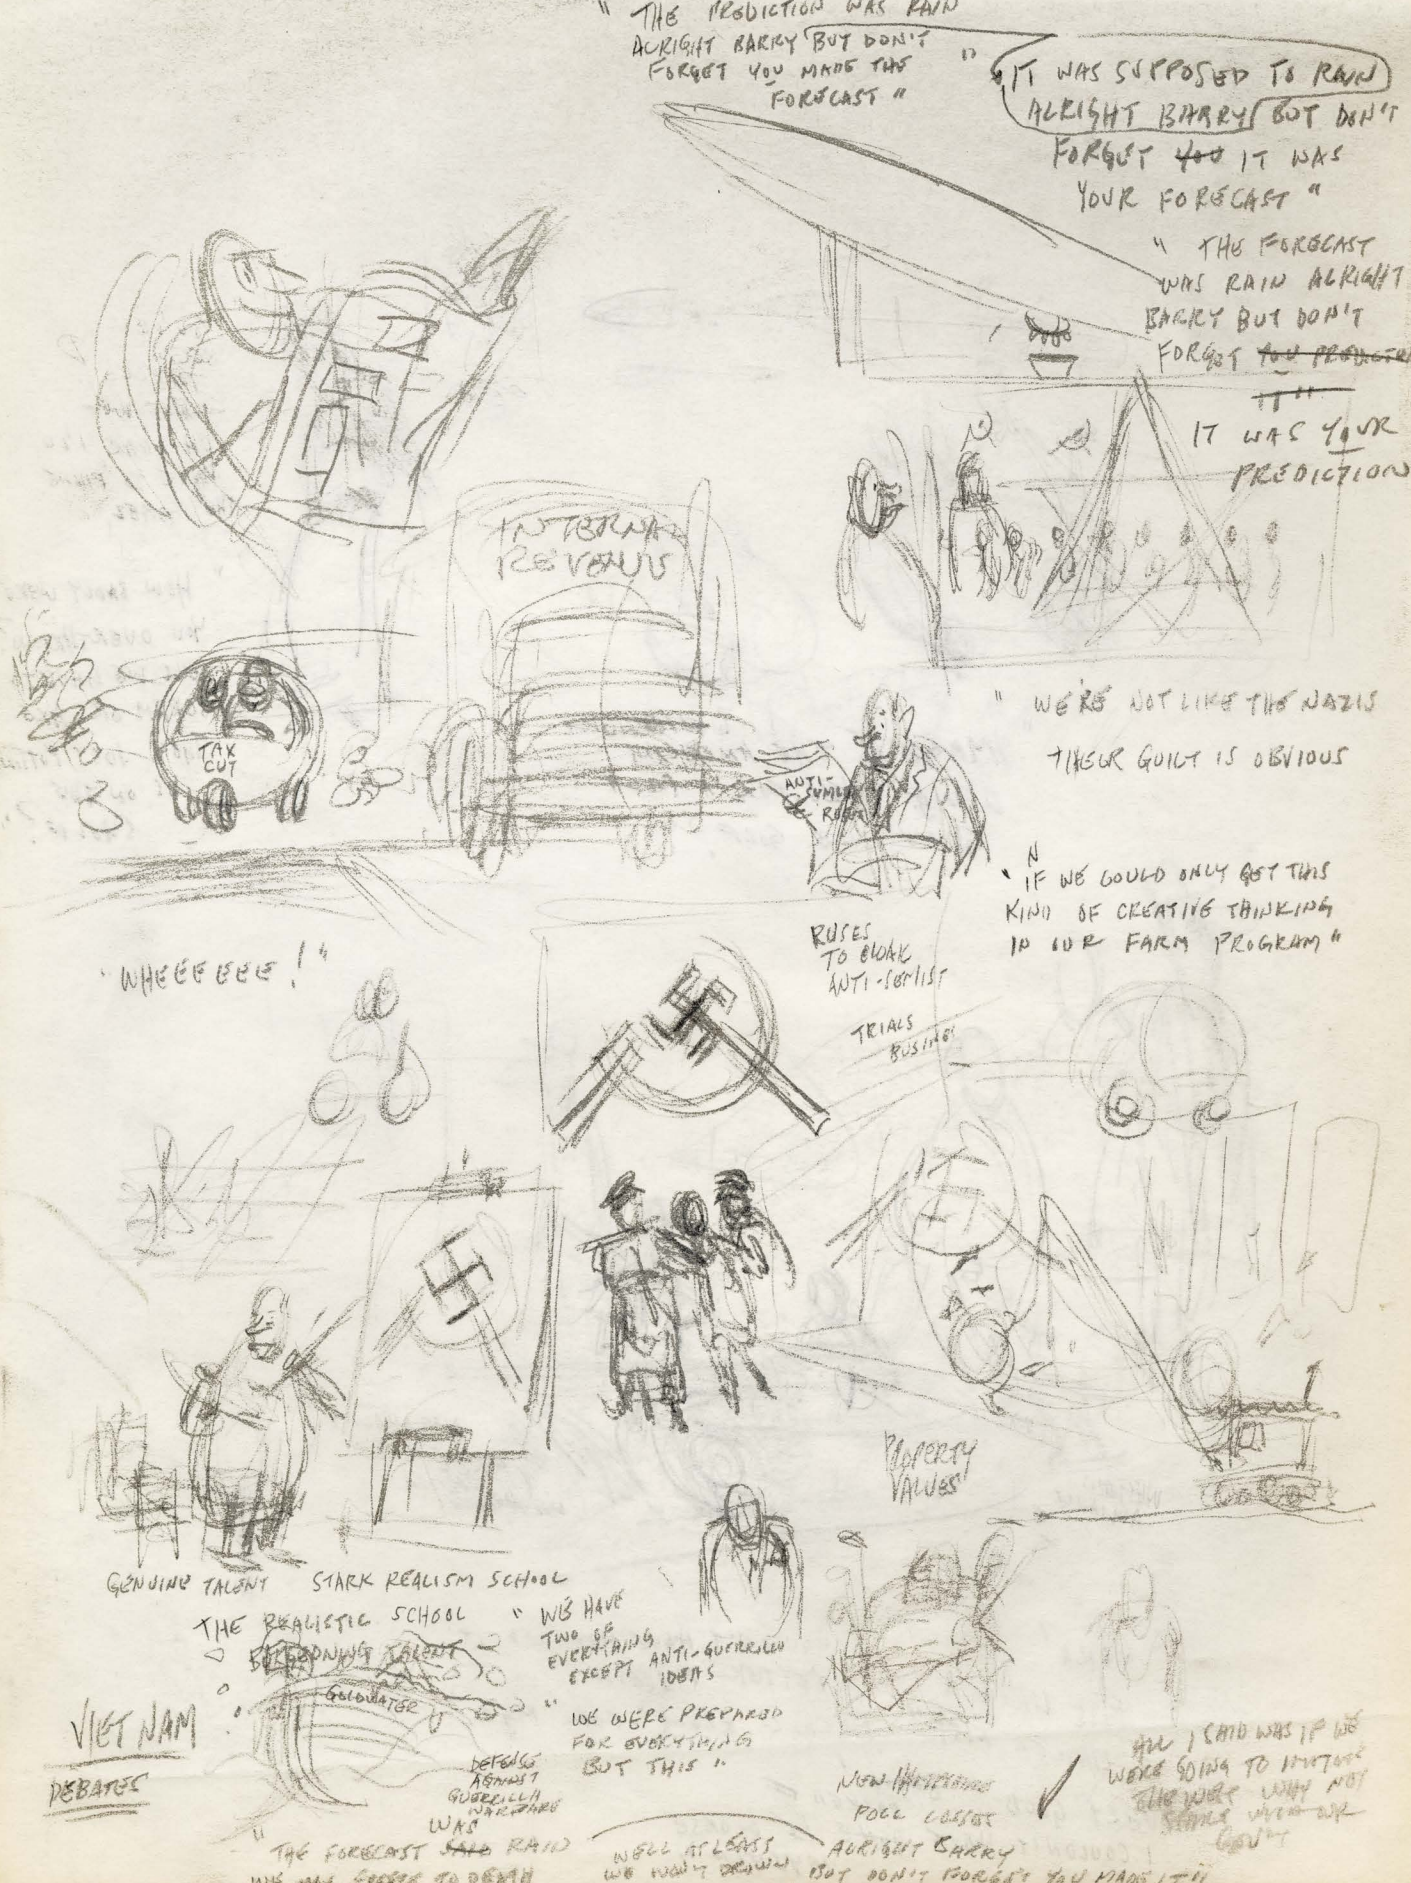 " THE PREDICTION WAS RAIN
ALRIGHT BARRY BUT DON'T
FORGET YOU MADE THE
FORECAST "
" IT WAS SUPPOSED TO RAIN
ALRIGHT BARRY BUT DON'T
FORGET YOU IT WAS
YOUR FORECAST "
" THE FORECAST
WAS RAIN ALRIGHT
BARRY BUT DON'T
FORGET YOU
IT "
IT WAS YOUR
PREDICTION
INTERNAL
REVENUE
TAX
CUT
" WE'RE NOT LIKE THE NAZIS
THEIR GUILT IS OBVIOUS
ANTI-
" IF WE COULD ONLY GET THIS
KIND OF CREATIVE THINKING
IN OUR FARM PROGRAM "
RUSES
TO CLOAK
ANTI-SEMIST
TRIALS
" WHEEEEEE ! "
PROPERTY
VALUES
GENUINE TALENT STARK REALISM SCHOOL
THE REALISTIC SCHOOL
TALENT
GOLDWATER
" WE HAVE
TWO OF
EVERYTHING
EXCEPT ANTI-GUERRILLA
IDEAS
" WE WERE PREPARED
FOR EVERYTHING
BUT THIS "
VIET NAM
DEBATES
DEFENSE
AGAINST
GUERRILLA
WARFARE
NEW HAMPSHIRE
POLL LOSSES
ALL I SAID WAS IF WE
WERE GOING TO IMITATE
WHY NOT
START WITH OUR
GOV'T
WAS
" THE FORECAST SAID RAIN
WELL AT LEAST
WE WON'T DROWN
ALRIGHT BARRY
BUT DON'T FORGET YOU MADE IT "